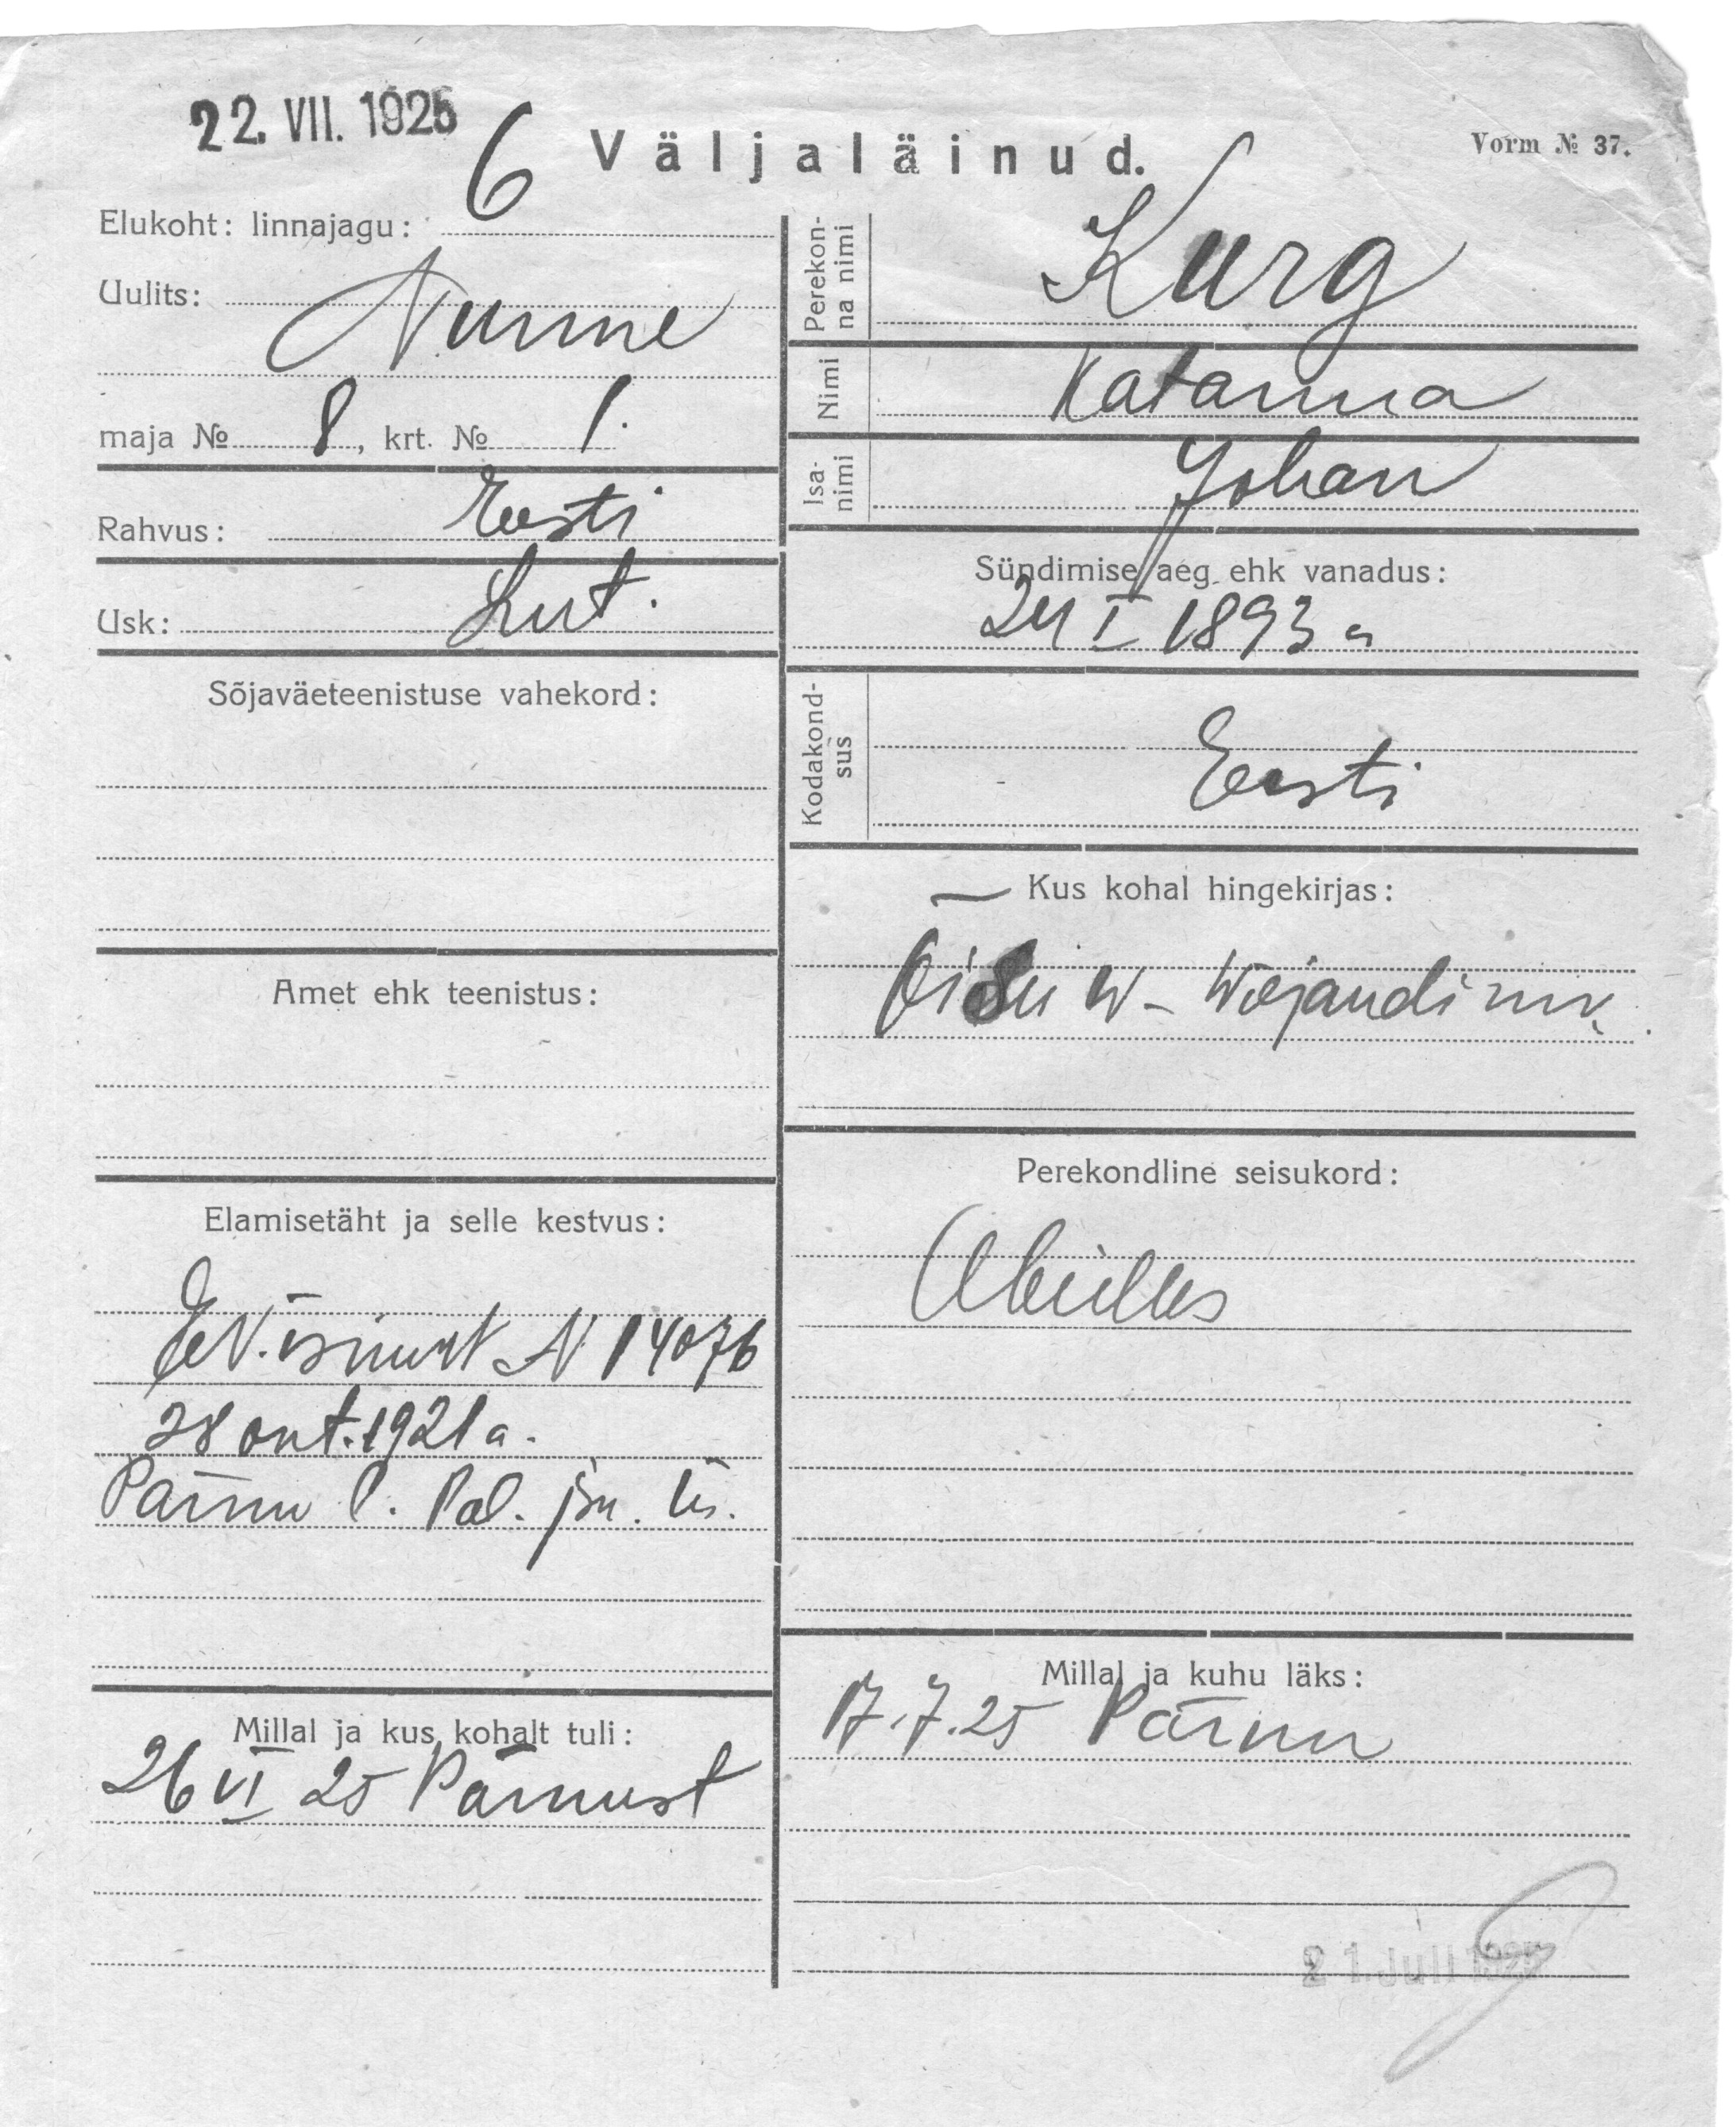 22. VII. 1925
Väljaläinud.
Vorm № 37.
Elukoht: linnajagu: 6
Uulits: Nunne
maja № 8, krt. № 1.
Rahvus: Eesti
Usk: Lut.
Sõjaväeteenistuse vahekord:
Amet ehk teenistus:
Elamisetäht ja selle kestvus:
N 14076
28 okt. 1921 a.
Pärnu l. Pol. jsk. ül.
Millal ja kus kohalt tuli:
26 VI 25 Pärnust
Perekonna nimi
Kurg
Nimi
Katarina
Isanimi
Johan
Sündimise aeg ehk vanadus:
24 I 1893 a
Kodakondsus
Eesti
Kus kohal hingekirjas:
Õisu W-
Perekondline seisukord:
Abielus
Millal ja kuhu läks:
17.7.25 Pärnu
21. Juli 1925